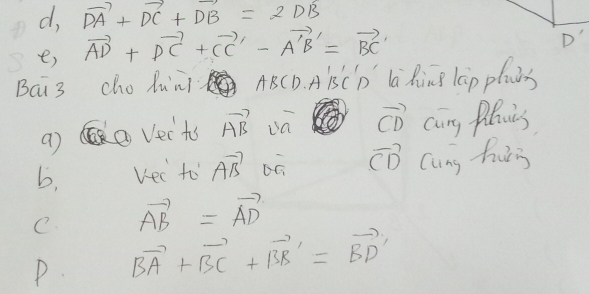 d, DA→ + DC→ + DB→ = 2 DB→
D'
e, AD→ + DC→ + CC'→ - A'B'→ = BC'→
Bài 3 cho hình ABCD.A'B'C'D' là hình lập phương
a) vectơ AB→ và CD→ cùng phương
b, vectơ AB→ và CD→ cùng hướng
c. AB→ = AD→
D. BA→ + BC→ + BB'→ = BD'→